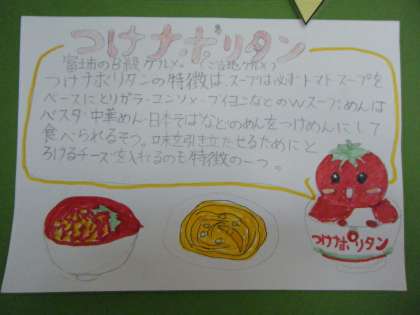 つけナポリタン
富士市のB級グルメ。(ご当地グルメ)
つけナポリタンの特徴は、スープは必ずトマトスープを
ベースにとりガラ・コンソメ・ブイヨンなどのWスープ。めんは
パスタ・中華めん・日本そばなどのめんをつけめんにして
食べられるそう。口味を引き立たせるためにと
ろけるチーズを入れるのも特徴の一つ。
つけナポリタン